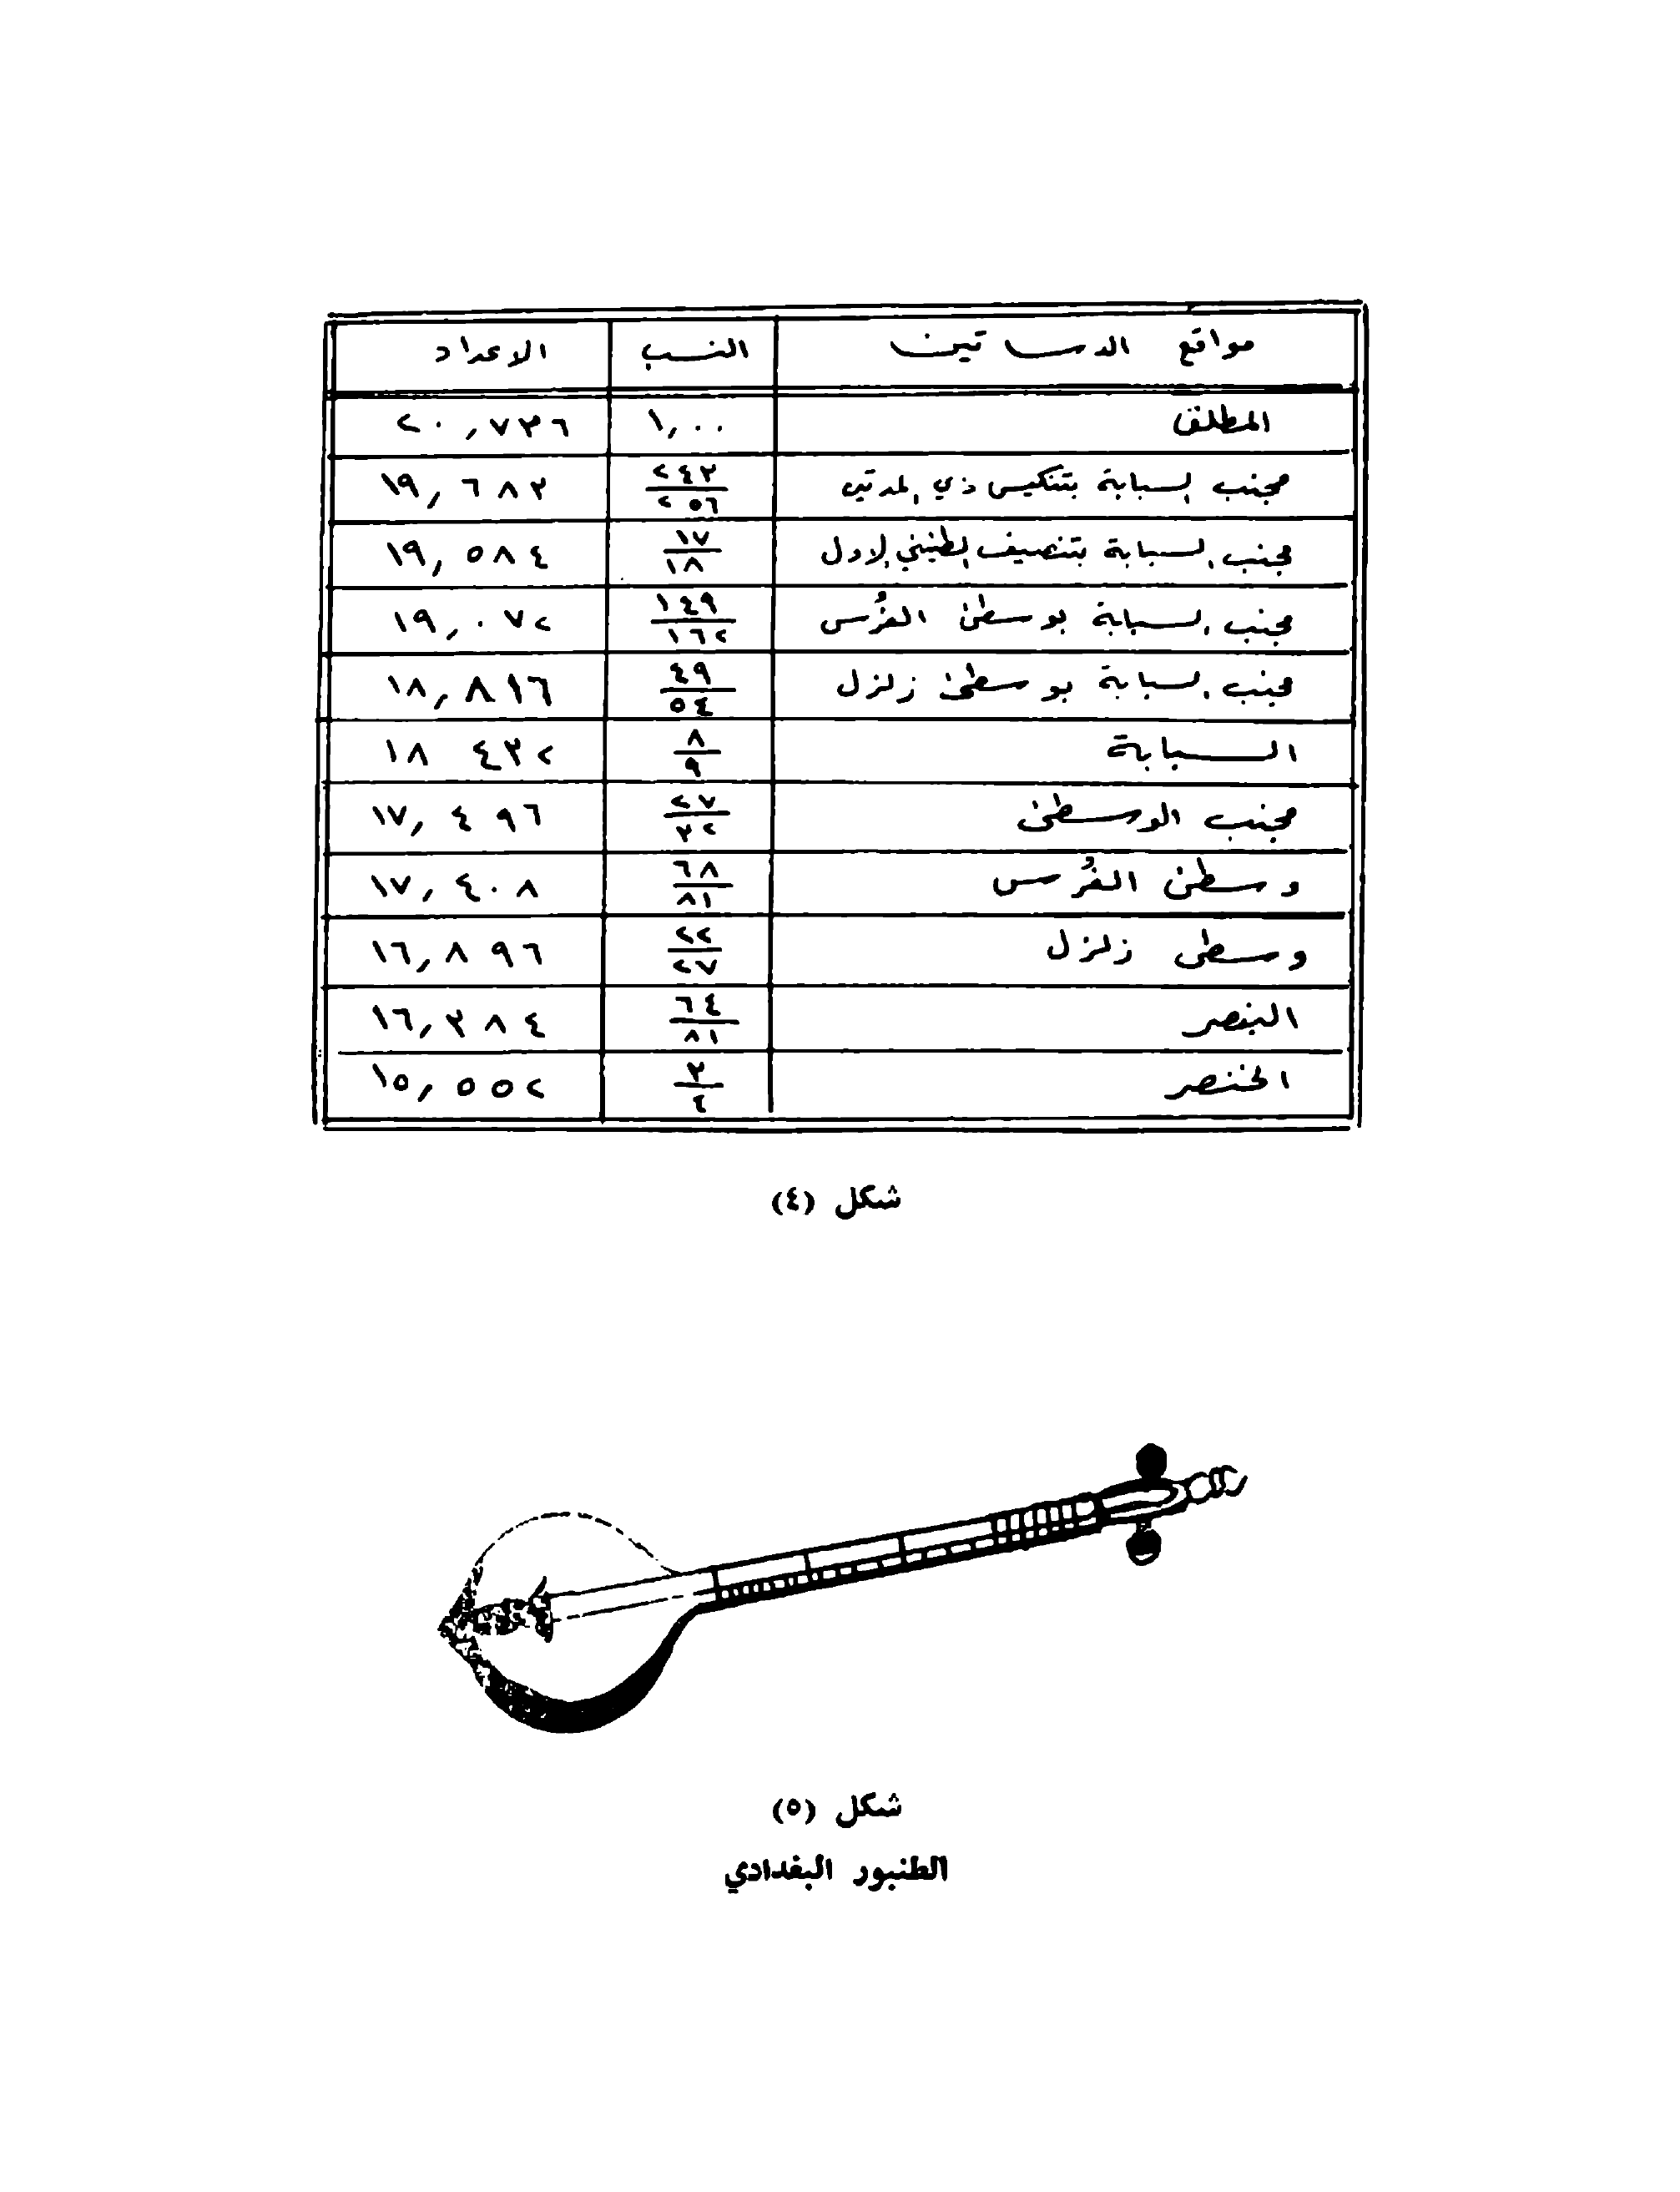 مواقع الدساتين النسب الاعداد
المطلق ١,٠٠ ٢٠,٧٣٦
مجنب السبابة بتنكيس ذي المدتين ٢٤٣/٢٥٦ ١٩,٦٨٣
مجنب السبابة بتنصيف الطنيني الاول ١٧/١٨ ١٩,٥٨٤
مجنب السبابة بوسطى الفُرس ١٤٩/١٦٢ ١٩,٠٧٢
مجنب السبابة بوسطى زلزل ٤٩/٥٤ ١٨,٨١٦
السبابة ٨/٩ ١٨ ٤٣٢
مجنب الوسطى ٢٧/٣٢ ١٧,٤٩٦
وسطى الفُرس ٦٨/٨١ ١٧,٤٠٨
وسطى زلزل ٢٢/٢٧ ١٦,٨٩٦
البنصر ٦٤/٨١ ١٦,٣٨٤
الخنصر ٣/٤ ١٥,٥٥٢
شكل (٤)
شكل (٥)
الطنبور البغدادي